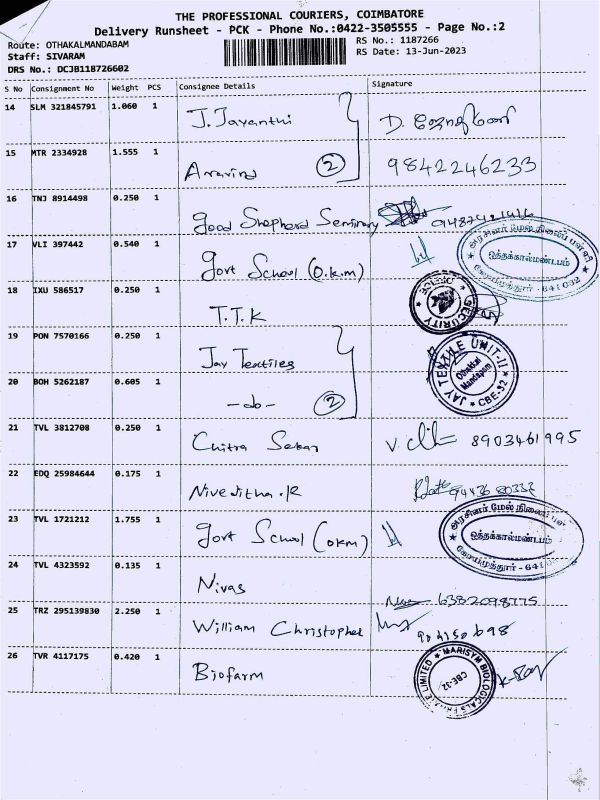 THE PROFESSIONAL COURIERS, COIMBATORE
Delivery Runsheet - PCK - Phone No.:0422-3505555 - Page No.:2
Route: OTHAKALMANDABAM
RS No.: 1187266
Staff: SIVARAM
RS Date: 13-Jun-2023
DRS No.: DCJB118726602
S No Consignment No Weight PCS Consignee Details Signature
14 SLM 321845791 1.060 1 J. Jayanthi D.
15 MTR 2334928 1.555 1 Aravind 2 9842246233
16 TNJ 8914498 0.250 1 Good Shepherd Seminary
17 VLI 397442 0.540 1 Govt School (O.k.m)
அரசினர் மேல் நிலைப் பள்ளி
ஒத்தக்கால்மண்டபம்
கோயமுத்தூர் - 641 032
18 IXU 586517 0.250 1 T.T.K
SECURITY OFFICE
19 PON 7570166 0.250 1 Jay Textiles
JAY TEXTILE UNIT-II
Othakkal
Mandapam
CBE-32
20 BOH 5262187 0.605 1 -do- 2
21 TVL 3812708 0.250 1 Chitra Sekar V. 8903461995
22 EDQ 25984644 0.175 1 Niveditha.R
23 TVL 1721212 1.755 1 Govt School (okm)
அரசினர் மேல் நிலைப்
ஒத்தக்கால்மண்டபம்
கோயமுத்தூர் - 641
24 TVL 4323592 0.135 1 Nivas 6382098775
25 TRZ 295139830 2.250 1 William Christopher
26 TVR 4117175 0.420 1 Biofarm
MARISYM BIOLOGICALS PRIVATE LIMITED
CBE-32